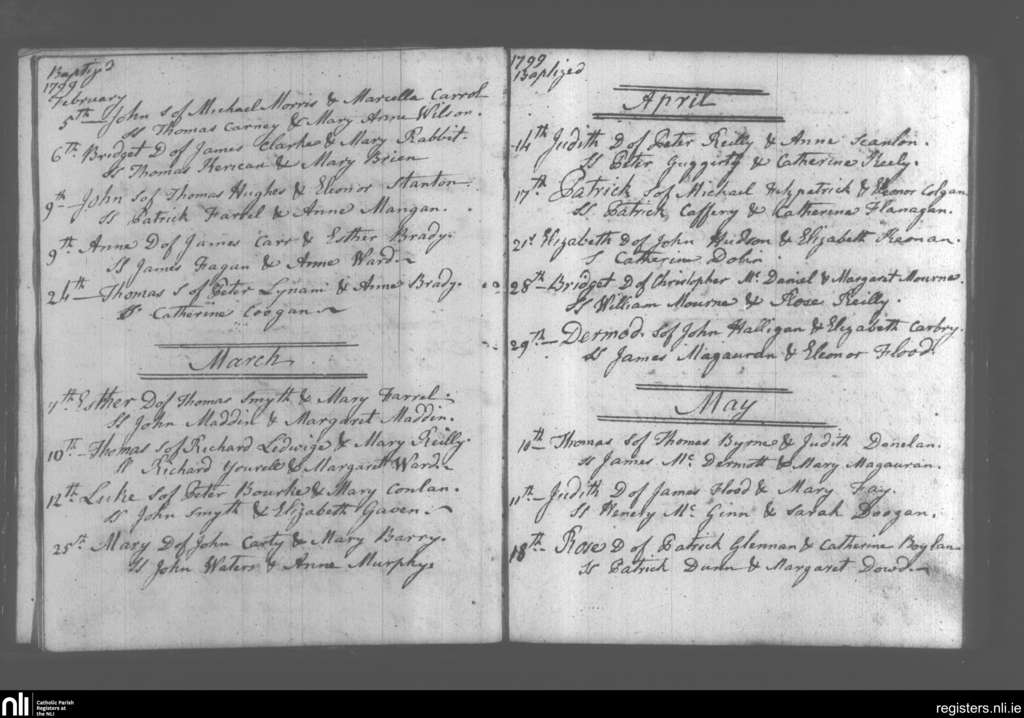 Baptized
1799
February
5th John S of Michael Morris & Marcella Carrol
Ss Thomas Carney & Mary Anne Wilson.
6th Bridget D of James Clarke & Mary Rabbit.
Ss Thomas Kerican & Mary Brien
9th John S of Thomas Hughes & Eleonor Stanton
Ss Patrick Farrel & Anne Mangan.
9th Anne D of James Carr & Esther Brady.
Ss James Fagan & Anne Ward.
24th Thomas S of Peter Lynam & Anne Brady.
Catherine Coogan
March
Esther D of Thomas Smyth & Mary Farrel
Ss John Maddin & Margaret Maddin.
10th Thomas S of Richard Ledwige & Mary Reilly.
Richard Yourell & Margaret Ward.
12th Luke S of Peter Bourke & Mary Conlan.
Ss John Smyth & Elizabeth Gaven
25th Mary D of John Carty & Mary Barry.
Ss John Waters & Anne Murphy
1799
Baptized
April
14th Judith D of Peter Reilly & Anne Scanlon.
Ss Peter Juggirty & Catherine Keely.
17th Patrick S of Michael Fitzpatrick & Eleonor Colgan
Ss Patrick Caffery & Catherine Flanagan.
21st Elizabeth D of John Hudson & Elizabeth Keenan.
S Catherine Dolin
28th Bridget D of Christopher Mc Daniel & Margaret Mourne.
Ss William Mourne & Rose Reilly.
29th Dermod S of John Halligan & Elizabeth Carbry.
Ss James Magauran & Eleonor Flood.
May
10th Thomas S of Thomas Byrne & Judith Donelan.
Ss James Mc Dermott & Mary Magauran.
11th Judith D of James Flood & Mary Fay.
Ss Mc Ginn & Sarah Doogan.
18th Rose D of Patrick Glennan & Catherine Boylan
Ss Patrick Dunn & Margaret Dowd.
nli
Catholic Parish
Registers at
the NLI
registers.nli.ie